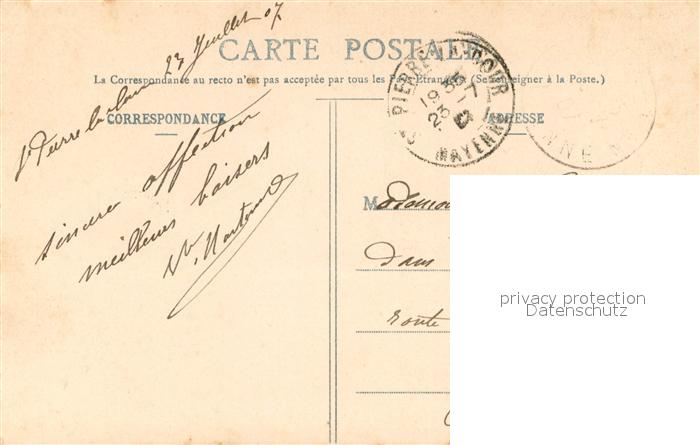 CARTE POSTALE
La Correspondance au recto n'est pas acceptée par tous les Pays Etrangers (Se renseigner à la Poste.)
CORRESPONDANCE
ADRESSE
St Pierre la Cour 23 Juillet 07
sincère affection
meilleurs baisers
PIERRE-LA-COUR
19 35
23 -7
07
MAYENNE
NNE
M
dans
route
privacy protection
Datenschutz